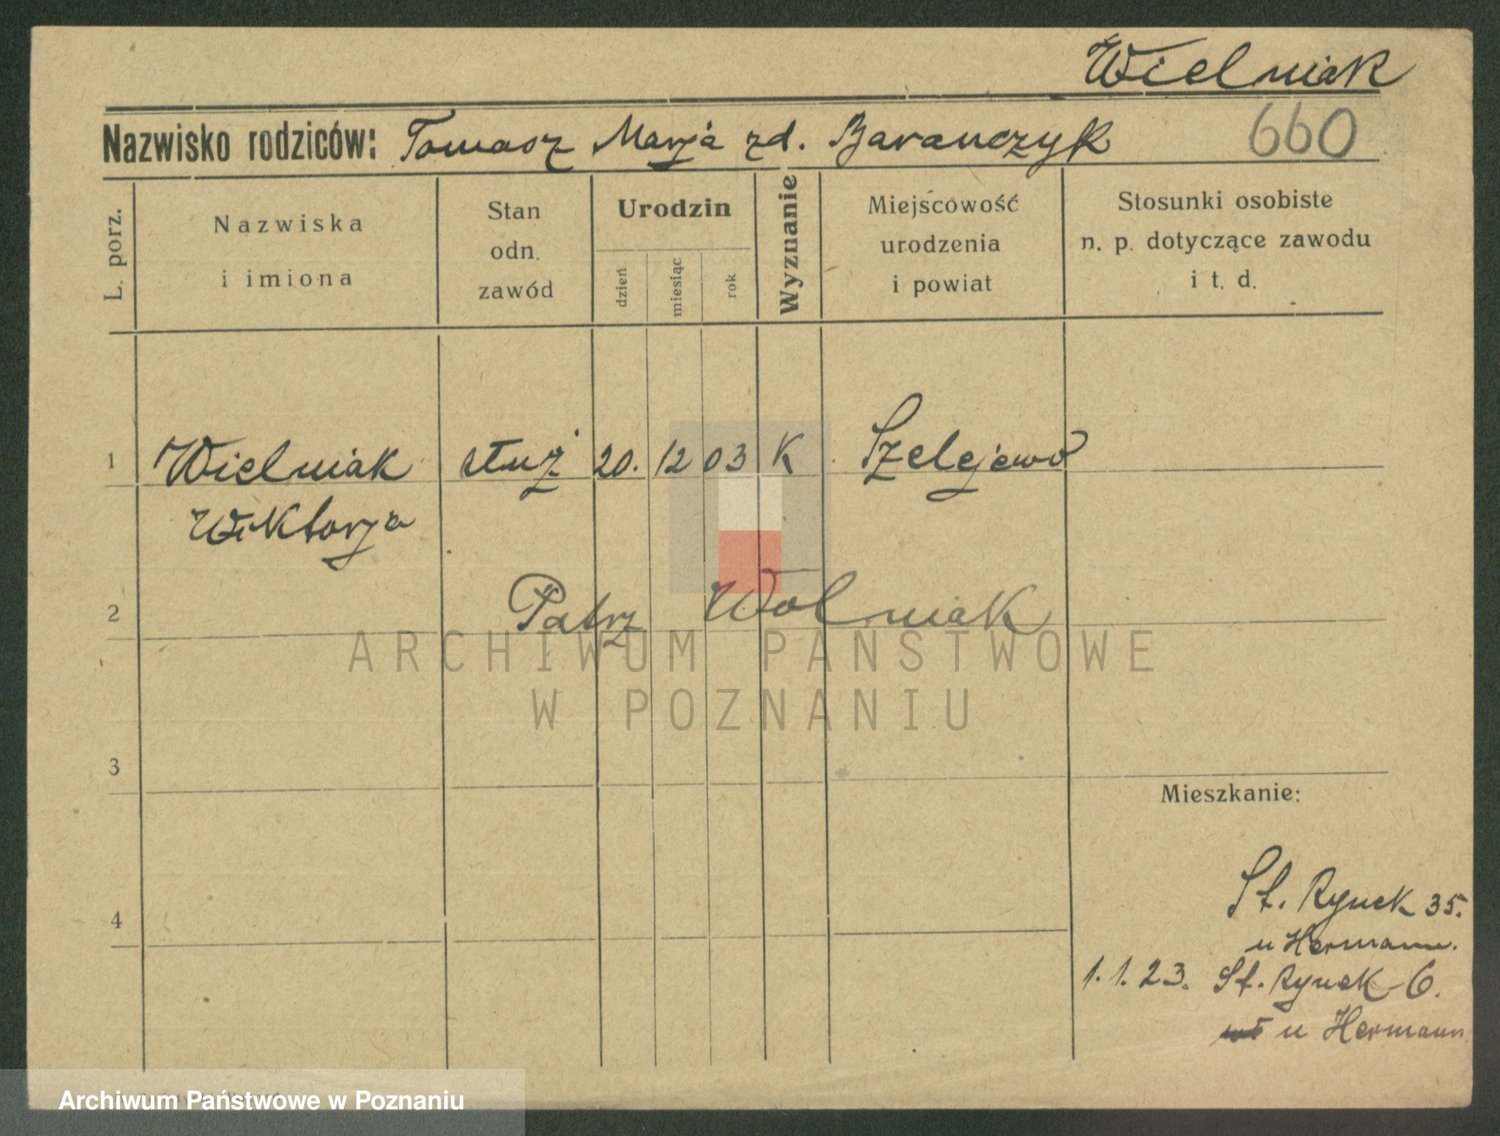 Wielniak
660
Nazwisko rodziców: Tomasz Marja zd. Baranczyk
L. porz.
Nazwiska
i imiona
Stan
odn.
zawód
Urodzin
dzień
miesiąc
rok
Wyznanie
Miejscowość
urodzenia
i powiat
Stosunki osobiste
n. p. dotyczące zawodu
i t. d.
1 Wielniak służ 20. 12 03 K Szelejewo
Wiktorja
2 Patrz Wolniak
ARCHIWUM PAŃSTWOWE
W POZNANIU
3
Mieszkanie:
4
St. Rynek 35.
u Hermann.
1.1.23. St. Rynek 6.
u Hermann
Archiwum Państwowe w Poznaniu